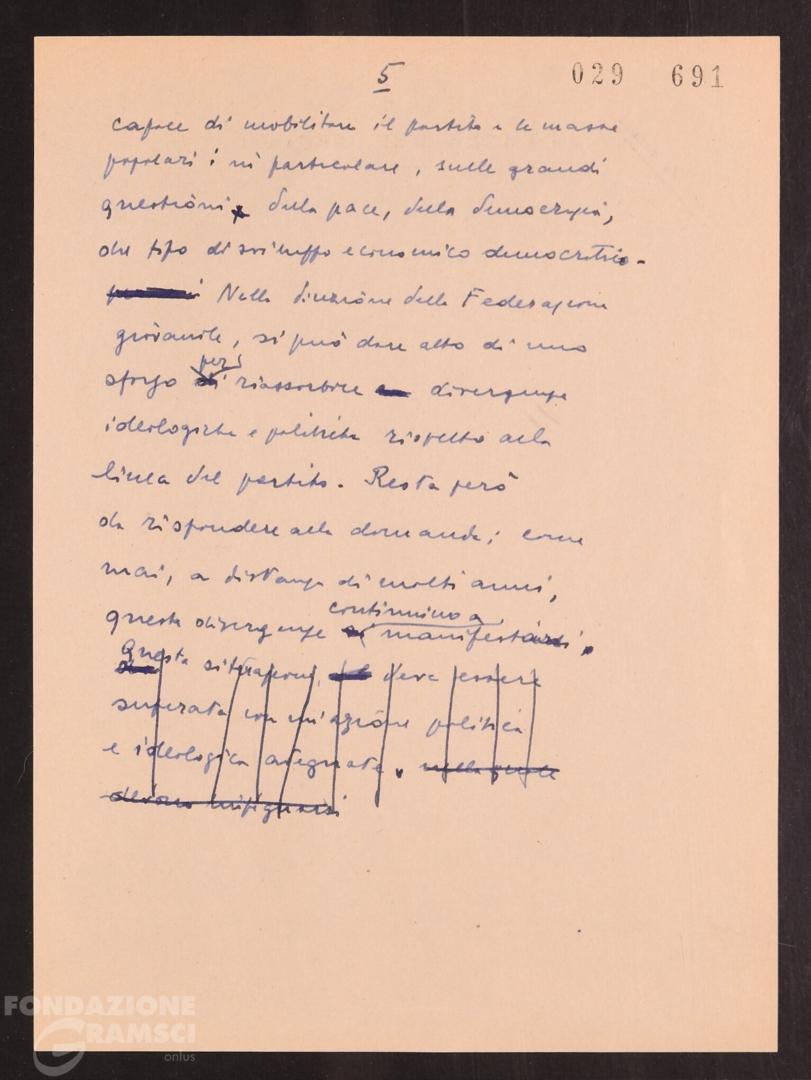 5
029 691
capace di mobilitare il partito e le masse
popolari in particolare, sulle grandi
questioni della pace, della democrazia,
del tipo di sviluppo economico democratico.
Nella direzione della Federazione
giovanile, si può dare atto di uno
sforzo per riassorbire divergenze
ideologiche e politiche rispetto alla
linea del partito. Resta però
da rispondere alla domanda; come
mai, a distanza di molti anni,
continuino a
queste divergenze manifestarsi.
Questa situazione, deve essere
superata con un'azione politica
e ideologica adeguata, nella quale
devono impegnarsi
FONDAZIONE
GRAMSCI
onlus